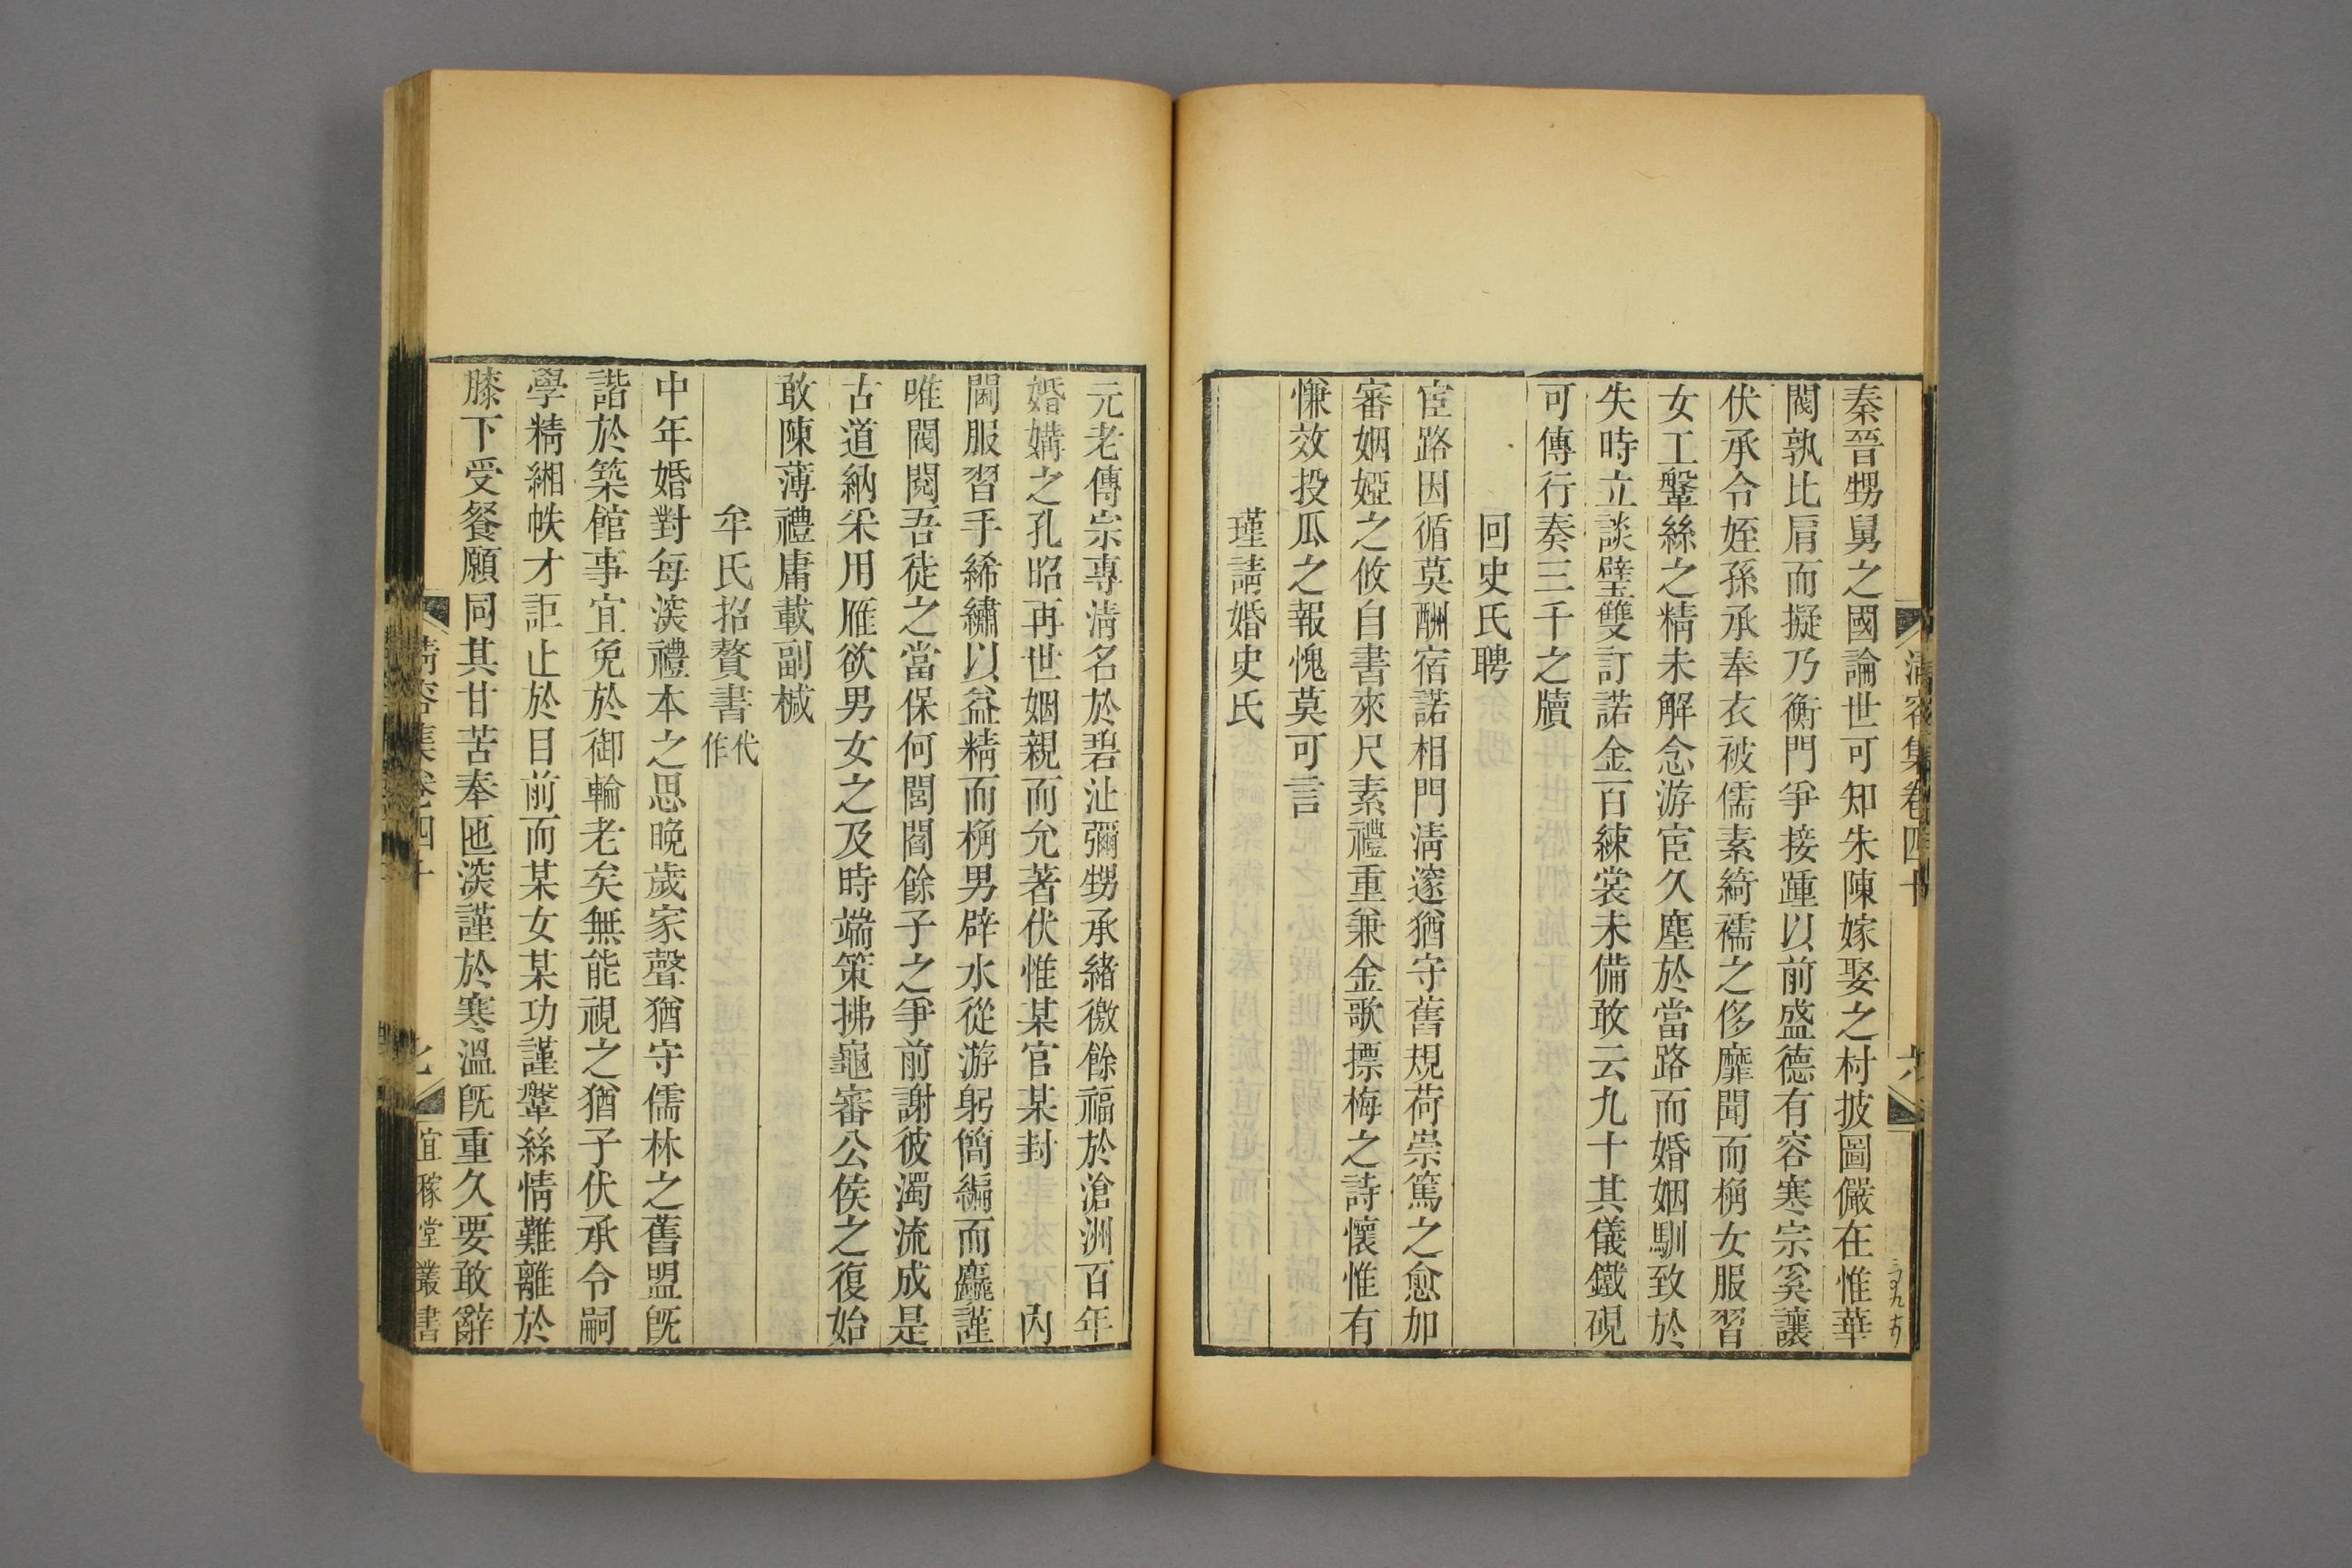 清容集卷四十
六
秦晉甥舅之國論世可知朱陳嫁娶之村披圖儼在惟華
閥孰比肩而擬乃衡門爭接踵以前盛德有容寒宗奚讓
伏承令姪孫承奉衣被儒素綺襦之侈靡聞而稱女服習
女工鞶絲之精未解念游宦久塵於當路而婚姻馴致於
失時立談璧雙訂諾金百練裳未備敢云九十其儀鐵硯
可傳行奏三千之牘
回史氏聘
宦路因循莫酬宿諾相門清邃猶守舊規荷崇篤之愈加
審姻婭之攸自書來尺素禮重兼金歌摽梅之詩懷惟有
慊效投瓜之報愧莫可言
瑾請婚史氏
元老傳宗專清名於碧沚彌甥承緒徼餘福於滄洲百年
婚媾之孔昭再世姻親而允著伏惟某官某封 內
閫服習手絺繡以益精而稱男辟水從游躬簡編而麤謹
唯閥閱吾徒之當保何閭閻餘子之爭前謝彼濁流成是
古道納采用雁欲男女之及時端策拂龜審公侯之復始
敢陳薄禮庸載副椷
牟氏招贅書代作
中年婚對每深禮本之思晚歲家聲猶守儒林之舊盟旣
諧於築館事宜免於御輪老矣無能視之猶子伏承令嗣
學精緗帙才詎止於目前而某女某功謹鞶絲情難離於
膝下受餐願同其甘苦奉匜深謹於寒溫旣重久要敢辭
清容集卷四十
七
宜稼堂叢書